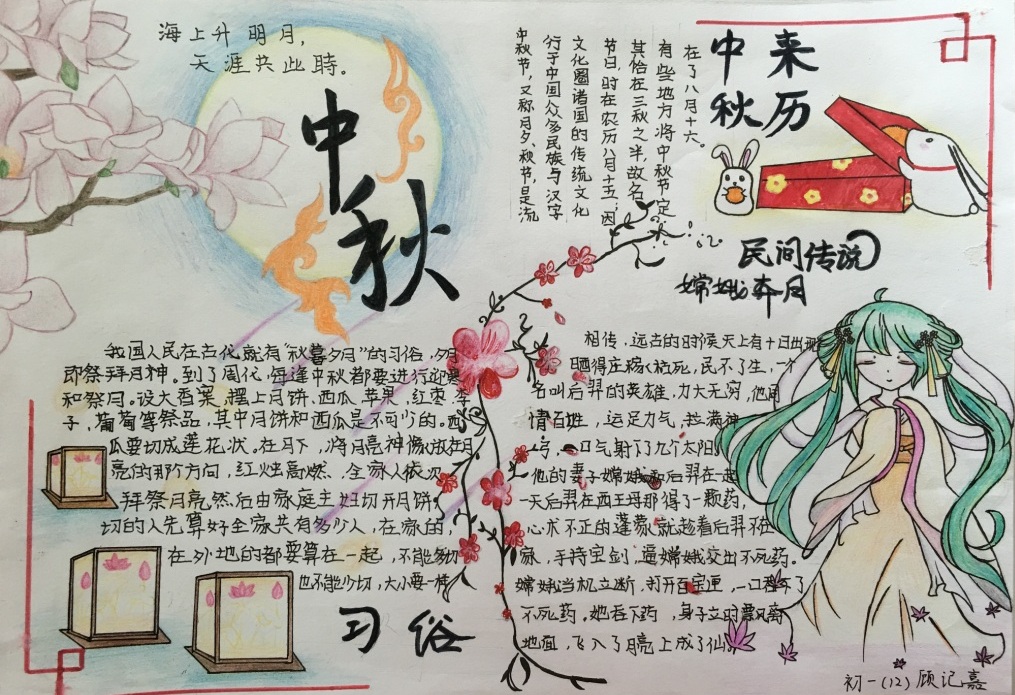 海上升明月，
天涯共此時。
中秋
中秋
来历
在了八月十六。
有些地方将中秋节定
其恰在三秋之半，故名，
节日，时在农历八月十五；因
文化圈诸国的传统文化
行于中国众多民族与汉字
中秋节，又称月夕、秋节，是流
民间传说
嫦娥奔月
我国人民在古代就有“秋暮夕月”的习俗，夕月
即祭拜月神。到了周代，每逢中秋都要进行迎寒
和祭月。设大香案，摆上月饼、西瓜、苹果、红枣、李
子、葡萄等祭品，其中月饼和西瓜是不可少的。西
瓜要切成莲花状。在月下，将月亮神像放在月
亮的那个方向，红烛高燃，全家人依次
拜祭月亮，然后由家庭主妇切开月饼。
切的人先算好全家共有多少人，在家的，
在外地的都要算在一起，不能多切
也不能少切，大小要一样
习俗
相传，远古的时候天上有十日出现
晒得庄稼枯死，民不了生，一个
名叫后羿的英雄，力大无穷，他同
情百姓，运足力气，拉满神
弓，一口气射下九个太阳
他的妻子嫦娥 后羿在一起
一天后羿在西王母那得了一颗药，
心术不正的蓬蒙就趁着后羿不在
家，手持宝剑，逼嫦娥交出不死药。
嫦娥当机立断，打开百宝匣，一口吞下了
不死药。她吞下药，身子立时飘离
地面，飞入了月亮上成了仙。
初一(12) 顾记嘉